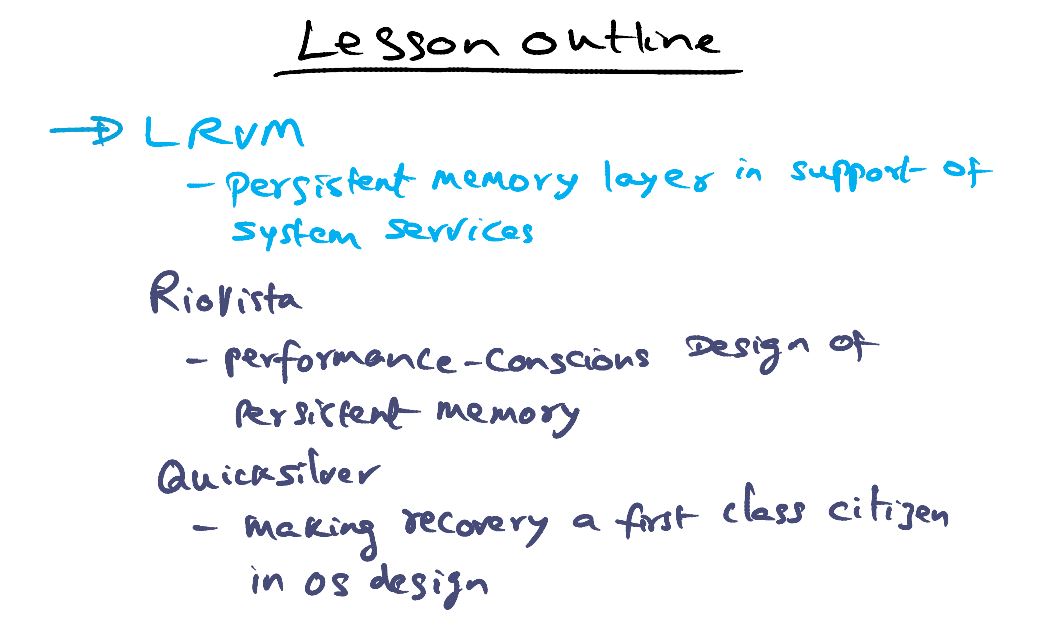 Lesson outline
→ LRVM
- persistent memory layer in support of
system services
RioVista
- performance-conscious Design of
persistent memory
Quicksilver
- making recovery a first class citizen
in os design